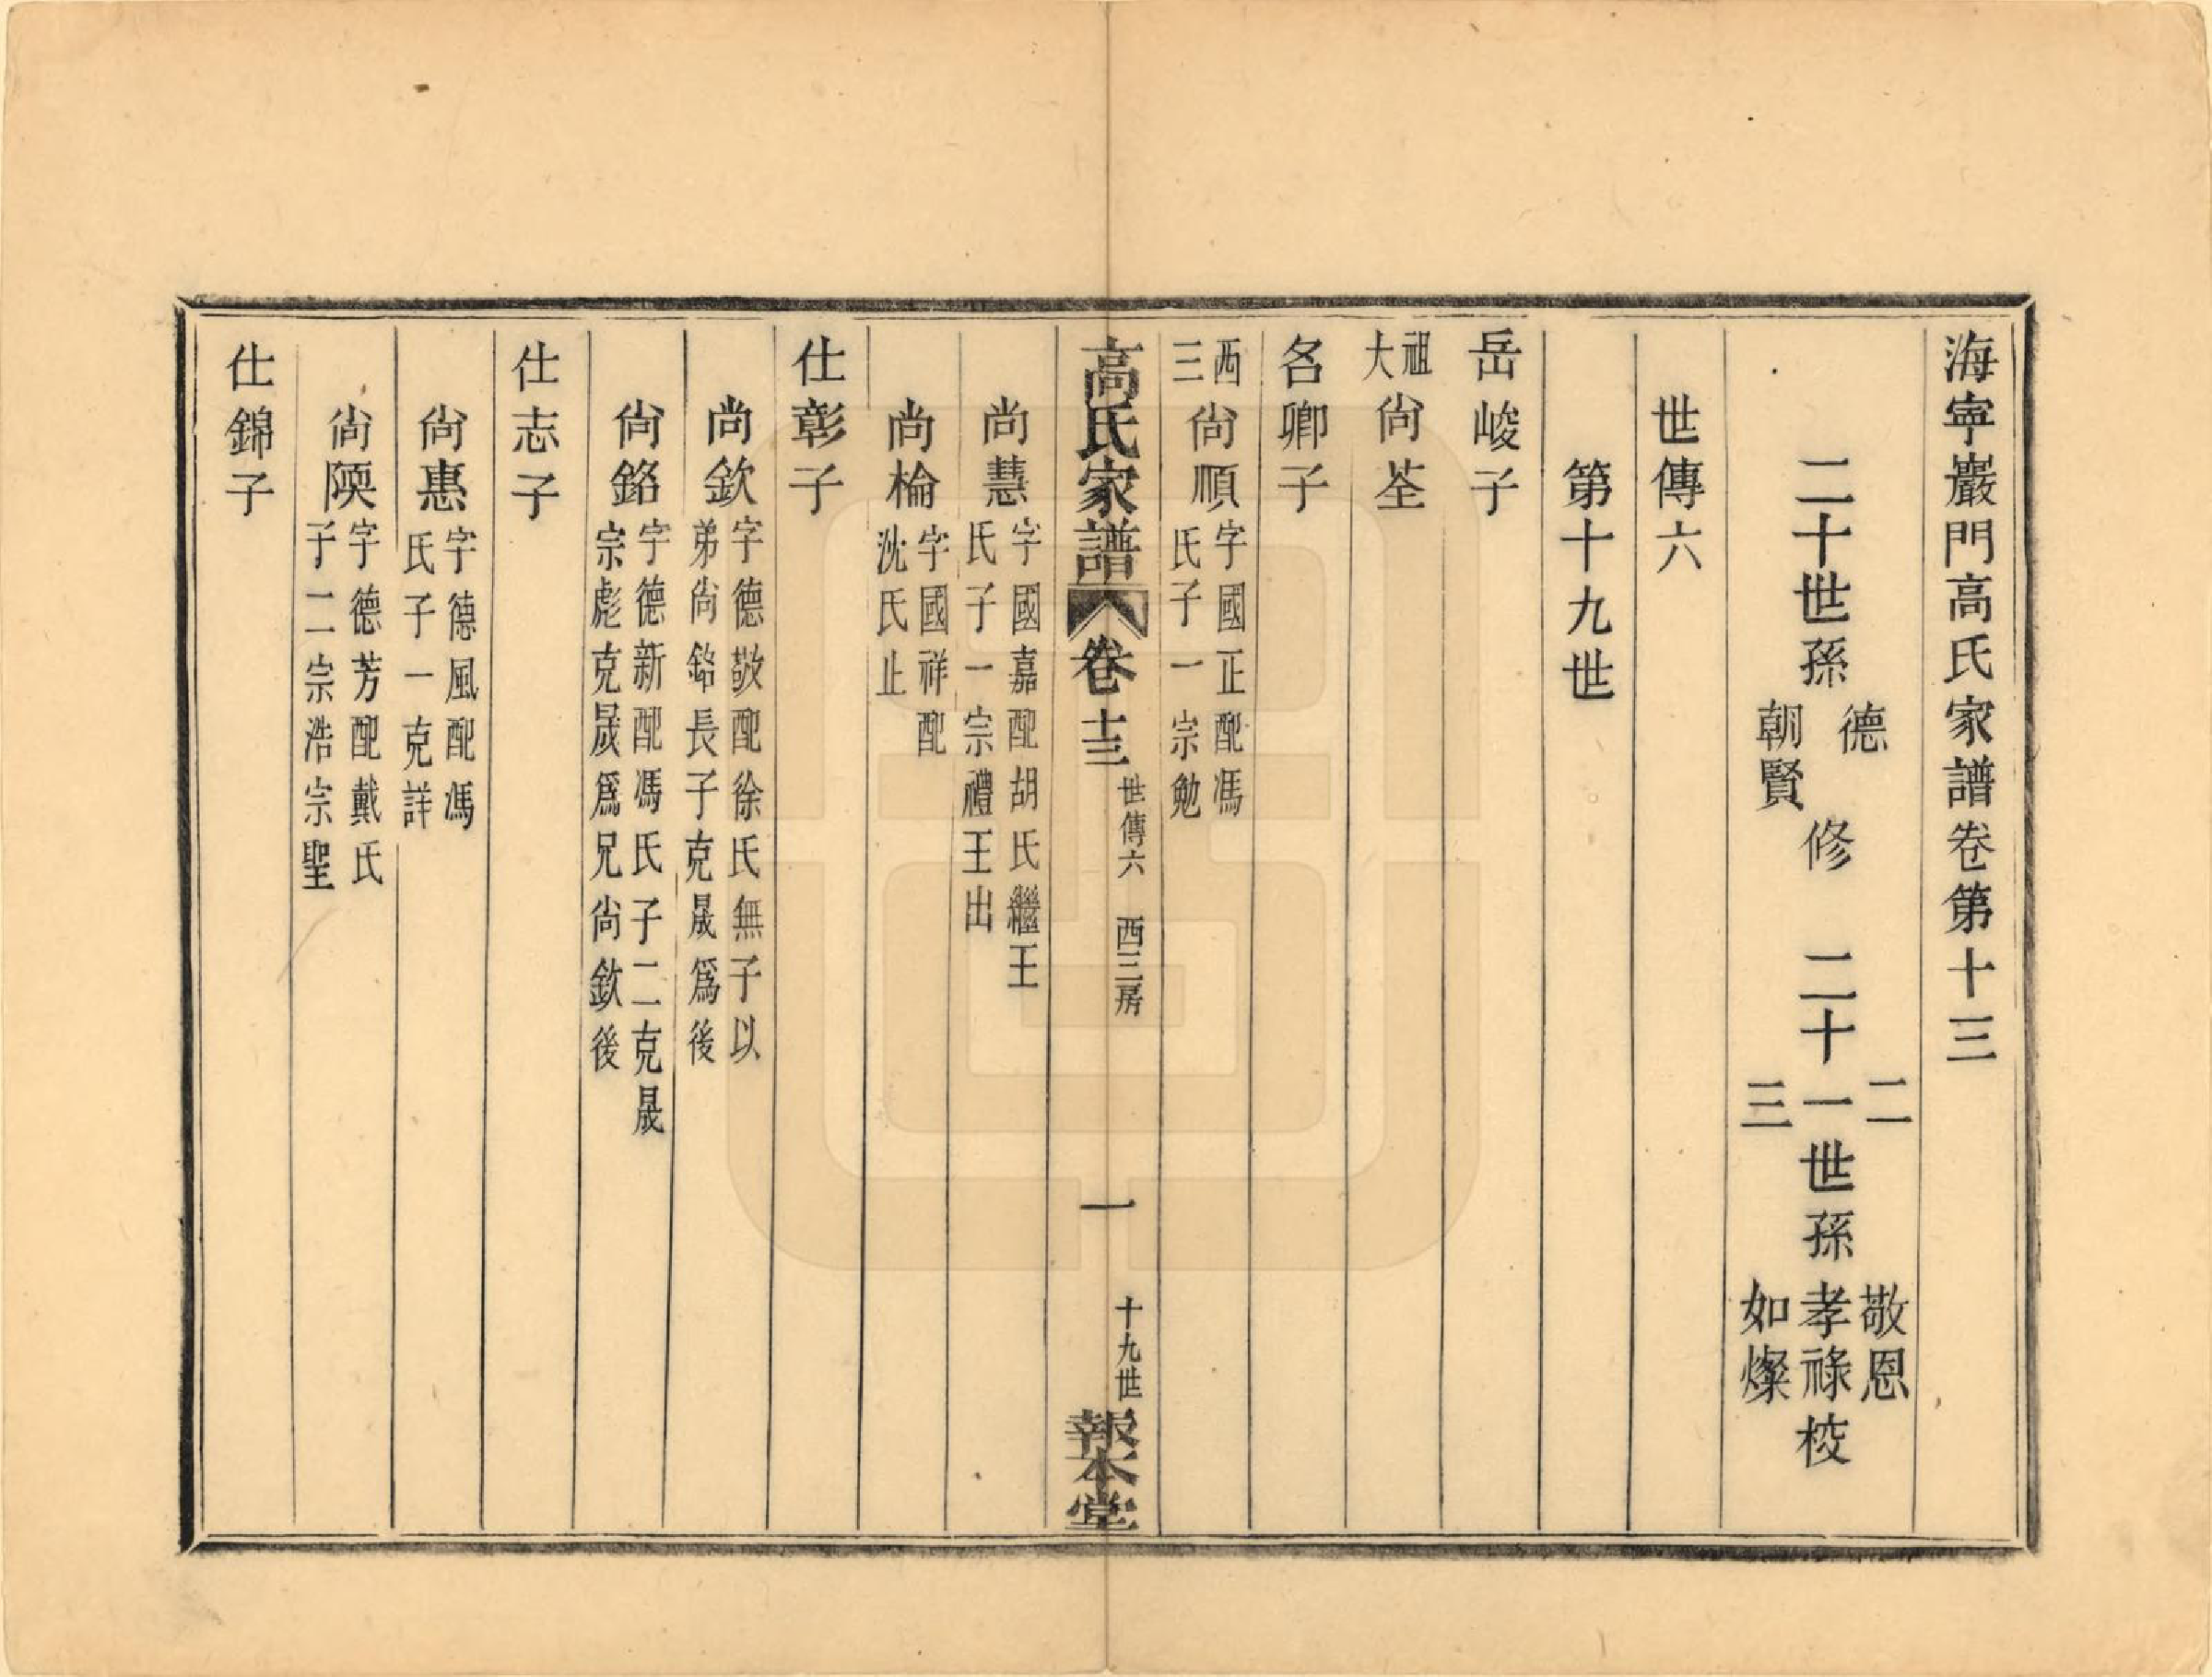 海寧巖門高氏家譜卷第十三
二十世孫德朝賢修 二十一二三世孫敬恩孝祿如燦校
世傳六
第十九世
岳峻子
祖大尙荃
名卿子
西三尙順字國正配馮氏子一宗勉
高氏家譜 卷十三 世傳六 西三房 一 十九世 報本堂
尚慧字國嘉配胡氏繼王氏子一宗禮王出
尚棆字國祥配沈氏止
仕彰子
尚欽字德敬配徐氏無子以弟尙銘長子克晟爲後
尙銘字德新配馮氏子二克晟宗彪克晟爲兄尙欽後
仕志子
尙惠字德風配馮氏子一克詳
尙隩字德芳配戴氏子二宗浩宗聖
仕錦子